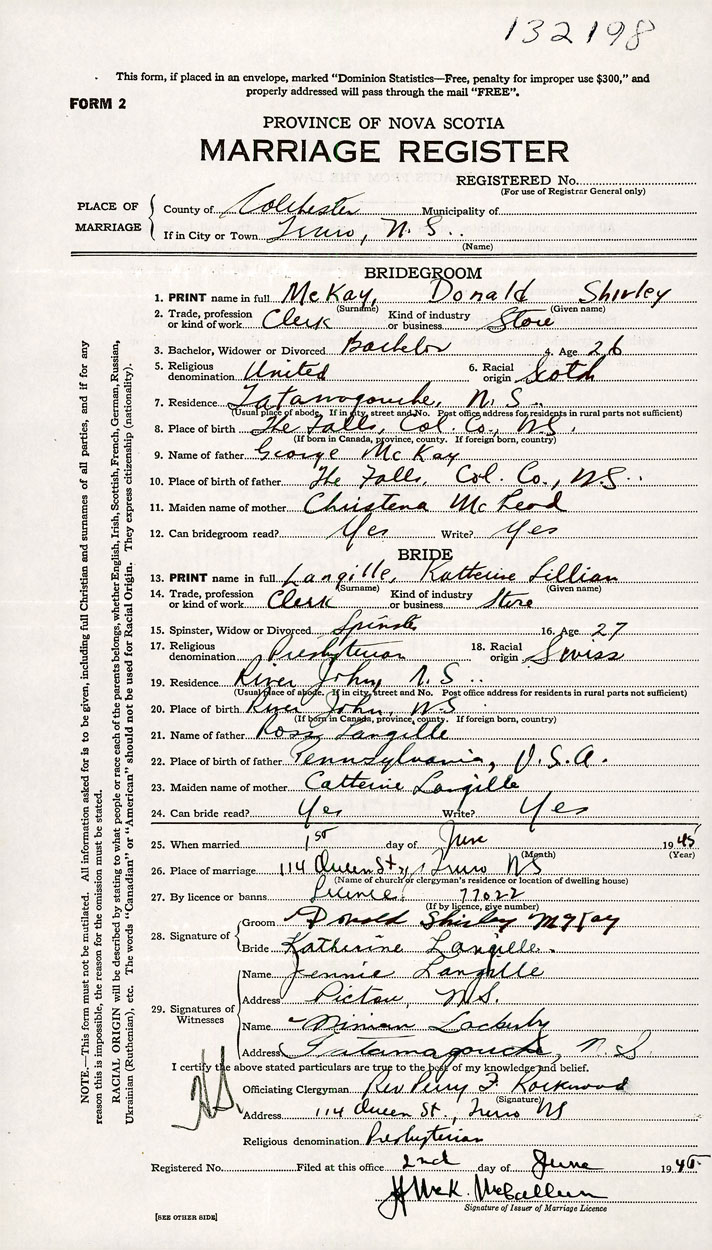 132198
This form, if placed in an envelope, marked "Dominion Statistics—Free, penalty for improper use $300," and
properly addressed will pass through the mail "FREE".
FORM 2
PROVINCE OF NOVA SCOTIA
MARRIAGE REGISTER
REGISTERED No.
(For use of Registrar General only)
PLACE OF MARRIAGE
County of Colchester Municipality of
If in City or Town Truro, N.S.
(Name)
BRIDEGROOM
1. PRINT name in full McKay, Donald Shirley
(Surname) (Given name)
2. Trade, profession or kind of work Clerk Kind of industry or business Store
3. Bachelor, Widower or Divorced Bachelor 4. Age 26
5. Religious denomination United 6. Racial origin Scoth
7. Residence Tatamagouche, N.S.
(Usual place of abode. If in city, street and No. Post office address for residents in rural parts not sufficient)
8. Place of birth The Falls, Col. Co., N.S.
(If born in Canada, province, county. If foreign born, country)
9. Name of father George McKay
10. Place of birth of father The Falls, Col. Co., N.S.
11. Maiden name of mother Christena McLeod
12. Can bridegroom read? Yes Write? Yes
BRIDE
13. PRINT name in full Langille, Katherine Lillian
(Surname) (Given name)
14. Trade, profession or kind of work Clerk Kind of industry or business Store
15. Spinster, Widow or Divorced Spinster 16. Age 27
17. Religious denomination Presbyterian 18. Racial origin Swiss
19. Residence River John, N.S.
(Usual place of abode. If in city, street and No. Post office address for residents in rural parts not sufficient)
20. Place of birth River John, N.S.
(If born in Canada, province, county. If foreign born, country)
21. Name of father Ross Langille
22. Place of birth of father Pennsylvania, U.S.A.
23. Maiden name of mother Catherine Langille
24. Can bride read? Yes Write? Yes
25. When married 1st day of June 1945
(Month) (Year)
26. Place of marriage 114 Queen St., Truro NS
(Name of church or clergyman's residence or location of dwelling house)
27. By licence or banns Licence 77022
(If by licence, give number)
28. Signature of
Groom Donald Shirley McKay
Bride Katherine Langille
29. Signatures of Witnesses
Name Jennie Langille
Address Pictou, N.S.
Name Lockerby
Address Tatamagouche, N.S.
I certify the above stated particulars are true to the best of my knowledge and belief.
Officiating Clergyman Rev Perry F. Rockwood
(Signature)
Address 114 Queen St., Truro NS
Religious denomination Presbyterian
Registered No. Filed at this office 2nd day of June 1945
McK. McCallum
Signature of Issuer of Marriage Licence
[SEE OTHER SIDE]
NOTE.—This form must not be mutilated. All information asked for is to be given, including full Christian and surnames of all parties, and if for any
reason this is impossible, the reason for the omission must be stated.
RACIAL ORIGIN will be described by stating to what people or race each of the parents belongs, whether English, Irish, Scottish, French, German, Russian,
Ukrainian (Ruthenian), etc. The words "Canadian" or "American" should not be used for Racial Origin. They express citizenship (nationality).